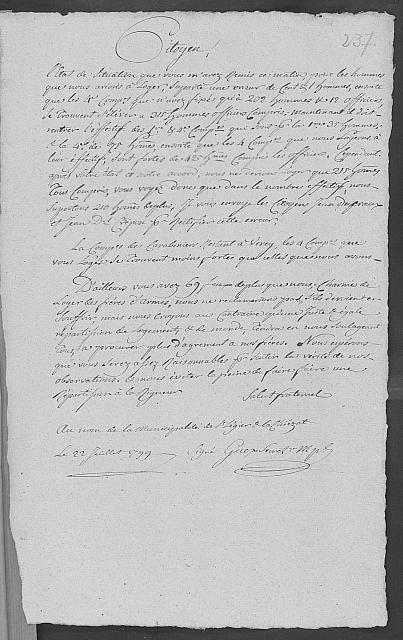 237.
Citoyen!
l'Etat de Situation que vous m'avez Remis ce matin, pour les hommes
que nous avions à Loger, Supporte une erreur de Cent & hommes, ensorte
que les 4 Compes que n'avez fixés qu'à 202 hommes & 12 officiers,
se trouvent s'élever à 315 hommes officiers Compris. Maintenant il doit
rentrer l'effectif des 1re & 4e Compes que sont pr la 1re 35 hommes,
& la 4e de 75 hommes, ensorte que les 4 Compes que nous Logeons, à
leur effectif, sont fortes de 425 hommes Compris les officiers. Cependant
après votre état et notre accord, nous ne devions loger que 215 homes
Tous Compris, vous voyez donc que dans le nombre effectif nous
Supportons 210 hommes de plus. Je vous envoye les Citoyens Jean Dufraux
et Jean Dl. pour Rectifier cette erreur.
La Compes des Carabiniers Restent à Vevey, les 4 Compes que
vous Logés se trouvent moins fortes que celles que nous avons.
D'ailleurs vous avez 69 feux de plus que nous. Charmés de
Loger des frères d'armes, nous ne reclamerions pas s'ils devoient en
Souffrir, mais nous Croyons au Contraire qu'une juste & égale
répartition de Logements & de monde, tendra en nous soulageant
tous, à procurer plus d'agrément à nos frères. Nous espérons
que vous Serez assez Raisonnables pr Sentir la vérité de nos
observations, & nous éviter la peine de faire faire une
Répartition à la Rigueur
Salut fraternel
Au nom de la Municipalité de St. Légier & la Chiezaz
Le 22 Juillet 1799 Signé Guex Secret. Mpl.